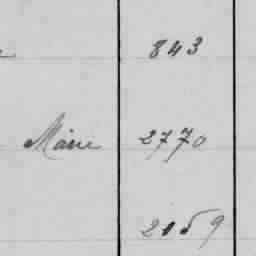 843
Marie 2770
2059